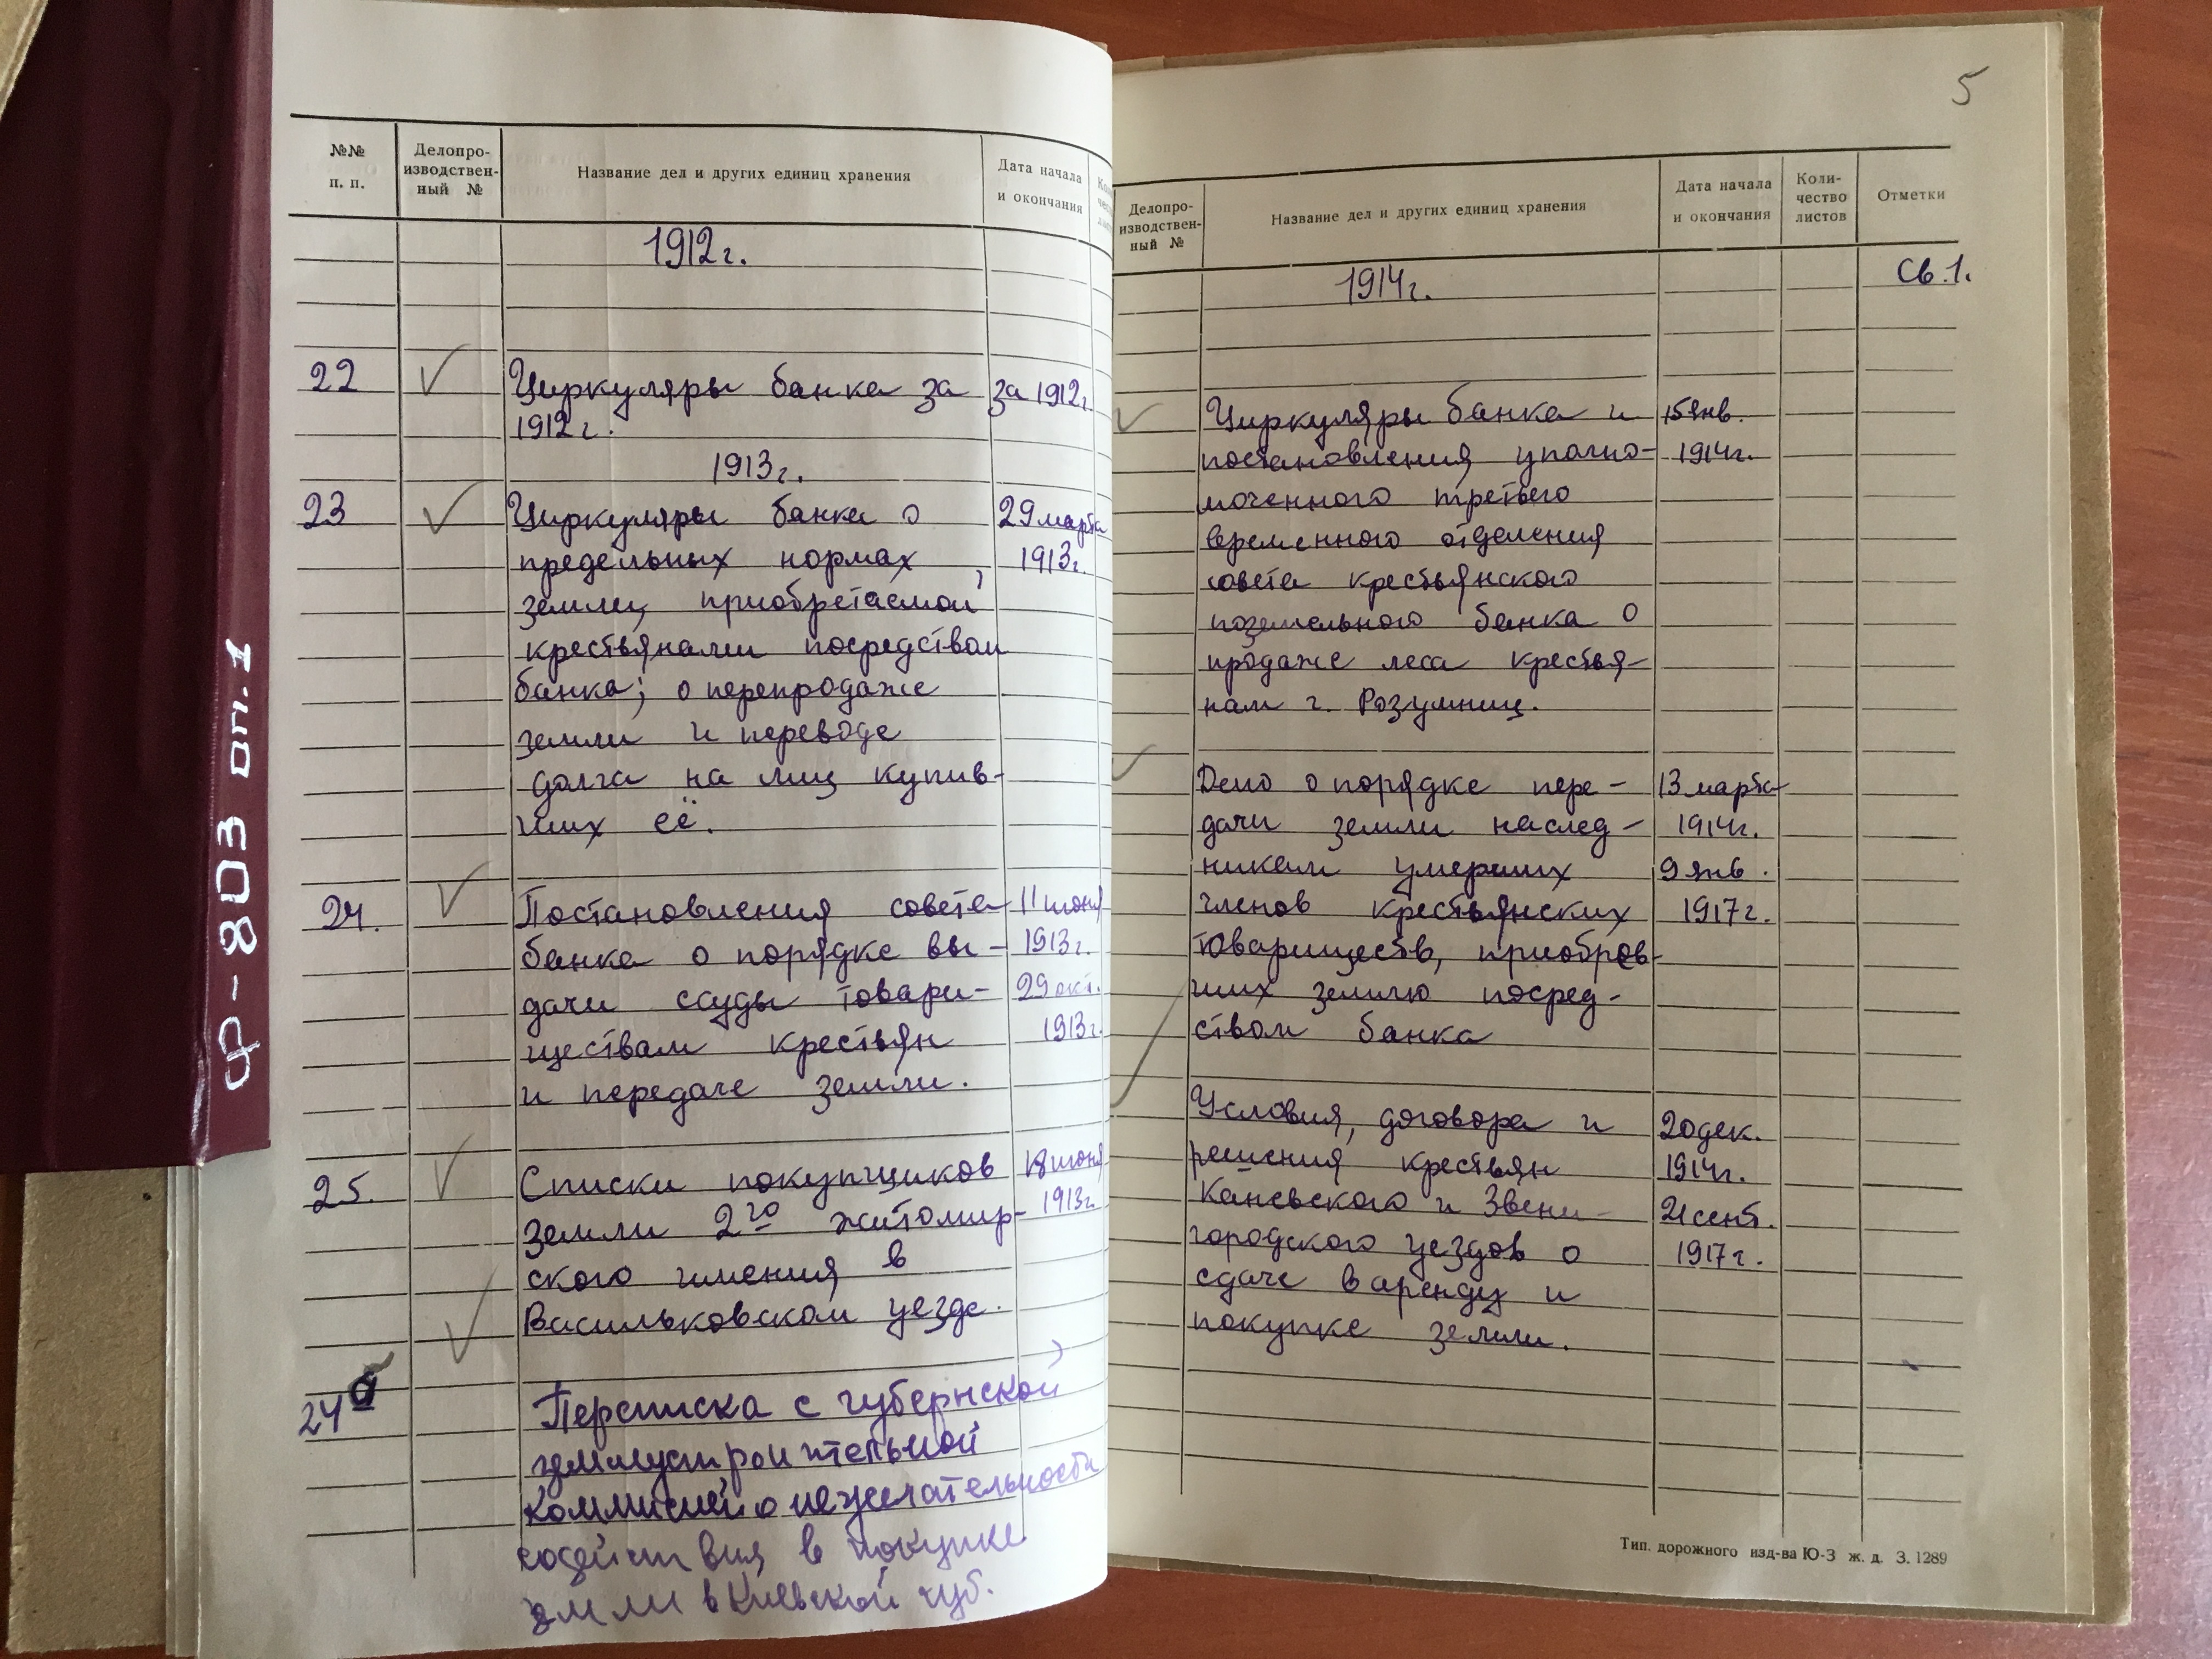 Ф-803 оп.1
№№ п. п.
Делопро-
изводствен-
ный №
Название дел и других единиц хранения
Дата начала
и окончания
1912г.
22 Циркуляры банка за за 1912г.
1912г.
1913г.
23 Циркуляры банка о 29 марта
предельных нормах 1913г.
земли, приобретаемой
крестьянами посредством
банка; о перепродаже
земли и переводе
долга на лиц купив-
ших её.
24. Постановления совета 11 июня
банка о порядке вы- 1913г.
дачи ссуды товари- 29 окт.
ществам крестьян 1913г.
и передаче земли.
25. Списки покупщиков 18 июня
земли 2го житомир- 1913г.
ского имения в
Васильковском уезде.
24а Переписка с губернской
землеустроительной
коммисией о нежелательности
содействия в покупке
земли в Киевской губ.
5
Делопро-
изводствен-
ный №
Название дел и других единиц хранения
Дата начала
и окончания
Коли-
чество
листов
Отметки
1914г. Св.1.
Циркуляры банка и 15 янв.
постановления уполно- 1914г.
моченного третьего
временного отделения
совета крестьянского
поземельного банка о
продаже леса крестья-
нам г. Розумниц.
Дело о порядке пере- 13 марта
дачи земли наслед- 1914г.
никам умерших 9 янв.
членов крестьянских 1917г.
товариществ, приобрев-
ших землю посред-
ством банка
Условия, договора и 20 дек.
решения крестьян 1914г.
Каневского и Звени- 21 сент.
городского уездов о 1917г.
сдаче в аренду и
покупке земли.
Тип. дорожного изд-ва Ю-З ж. д. З. 1289